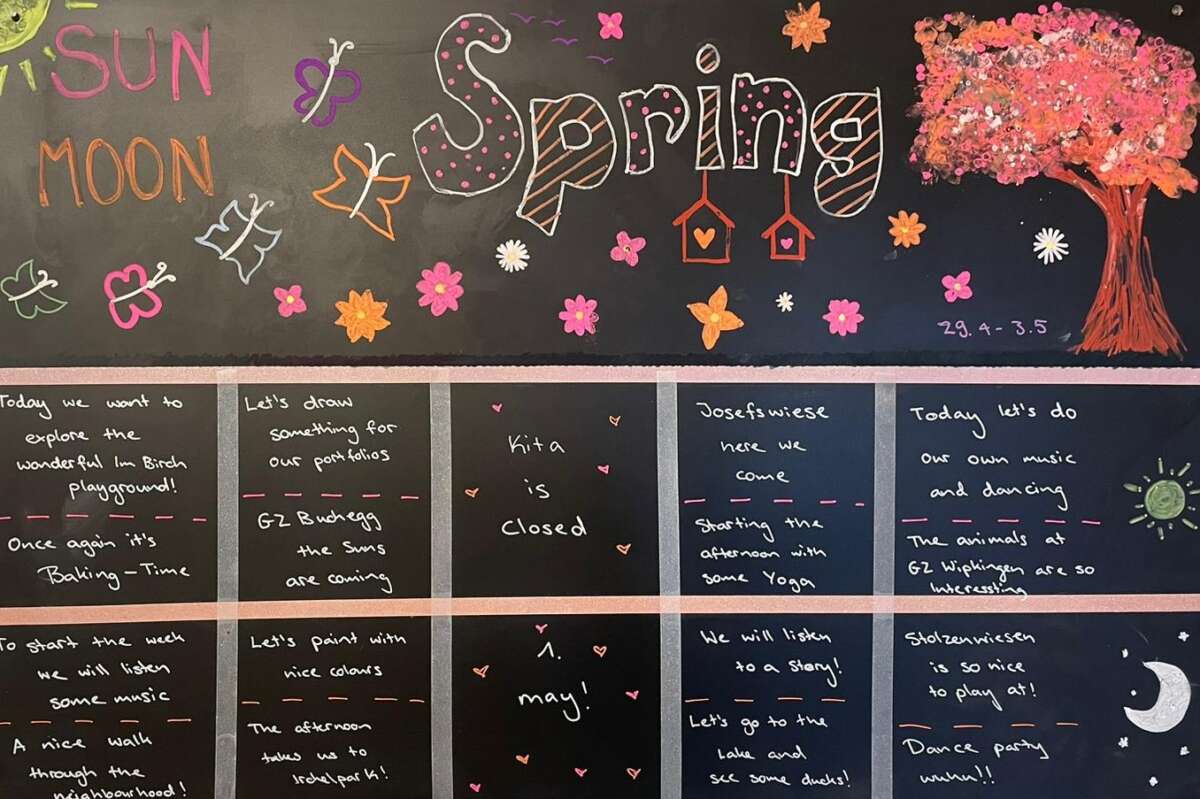 SUN
MOON
Spring
29.4 - 3.5
Today we want to
explore the
wonderful Im Birch
playground!
Once again it's
Baking-Time
Let's draw
something for
our portfolios
GZ Buchegg
the Suns
are coming
Kita
is
closed
Josefswiese
here we
come
Starting the
afternoon with
some Yoga
Today let's do
our own music
and dancing
The animals at
GZ Wipkingen are so
Interessting
To start the week
we will listen
some music
A nice walk
through the
neighbourhood!
Let's paint with
nice colours
The afternoon
takes us to
Irchelpark!
1.
may!
We will listen
to a story!
Let's go to the
Lake and
see some ducks!
Stolzenwiesen
is so nice
to play at!
Dance party
wuhu!!